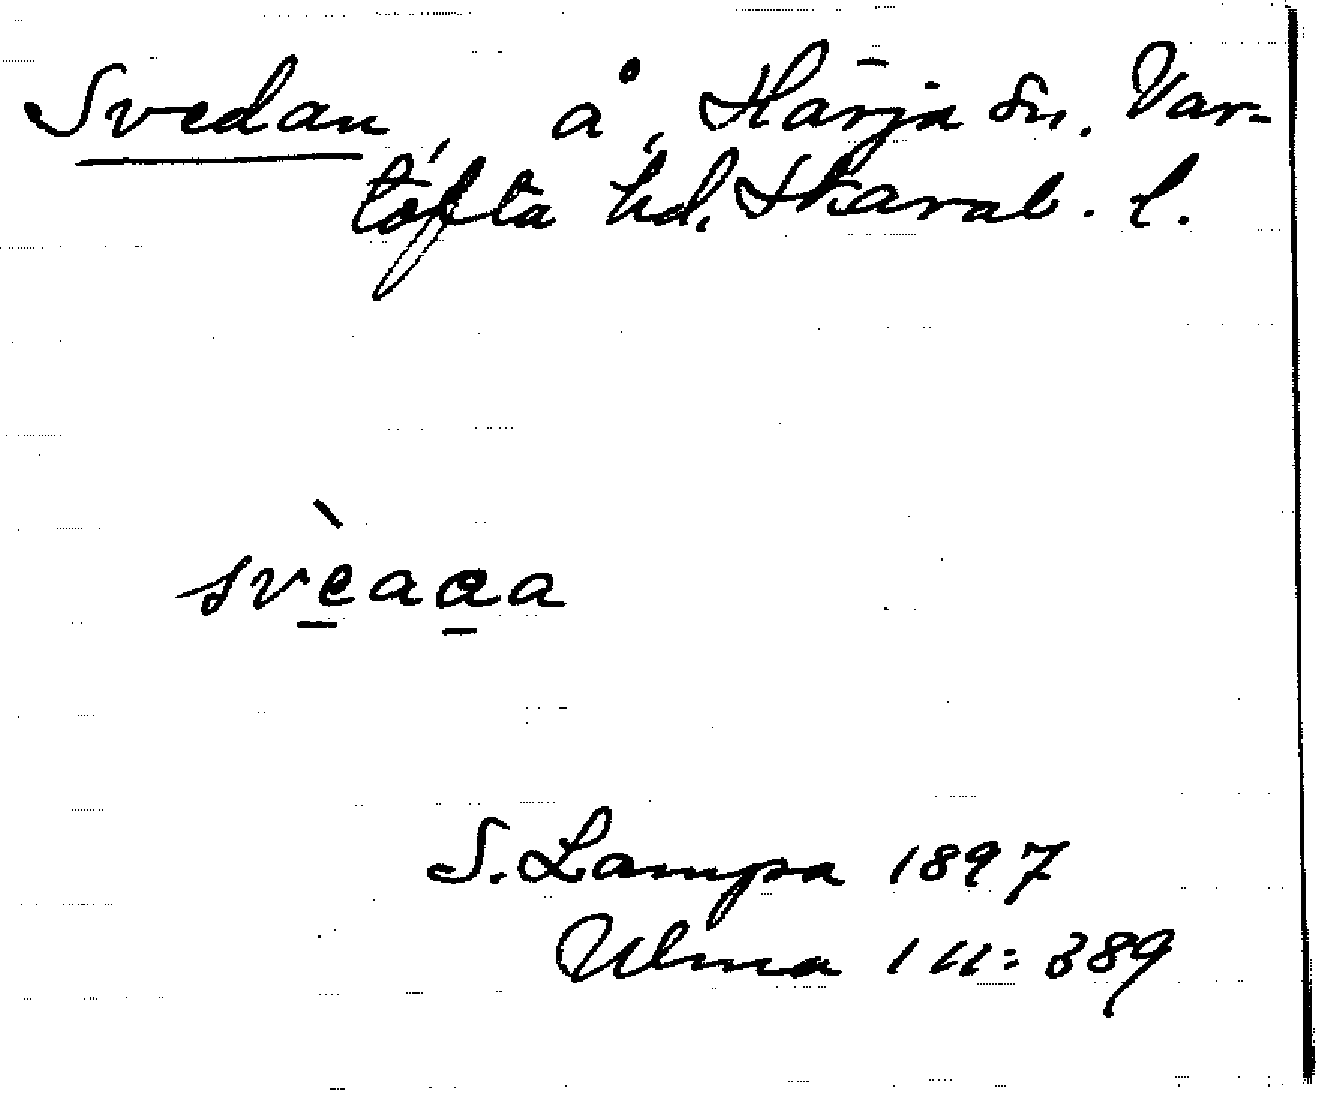 Svedan, å, Härja sn. Var-
tofta hd. Skarab. l.
svèaaa
S. Lampa 1897
Ulma 111: 389